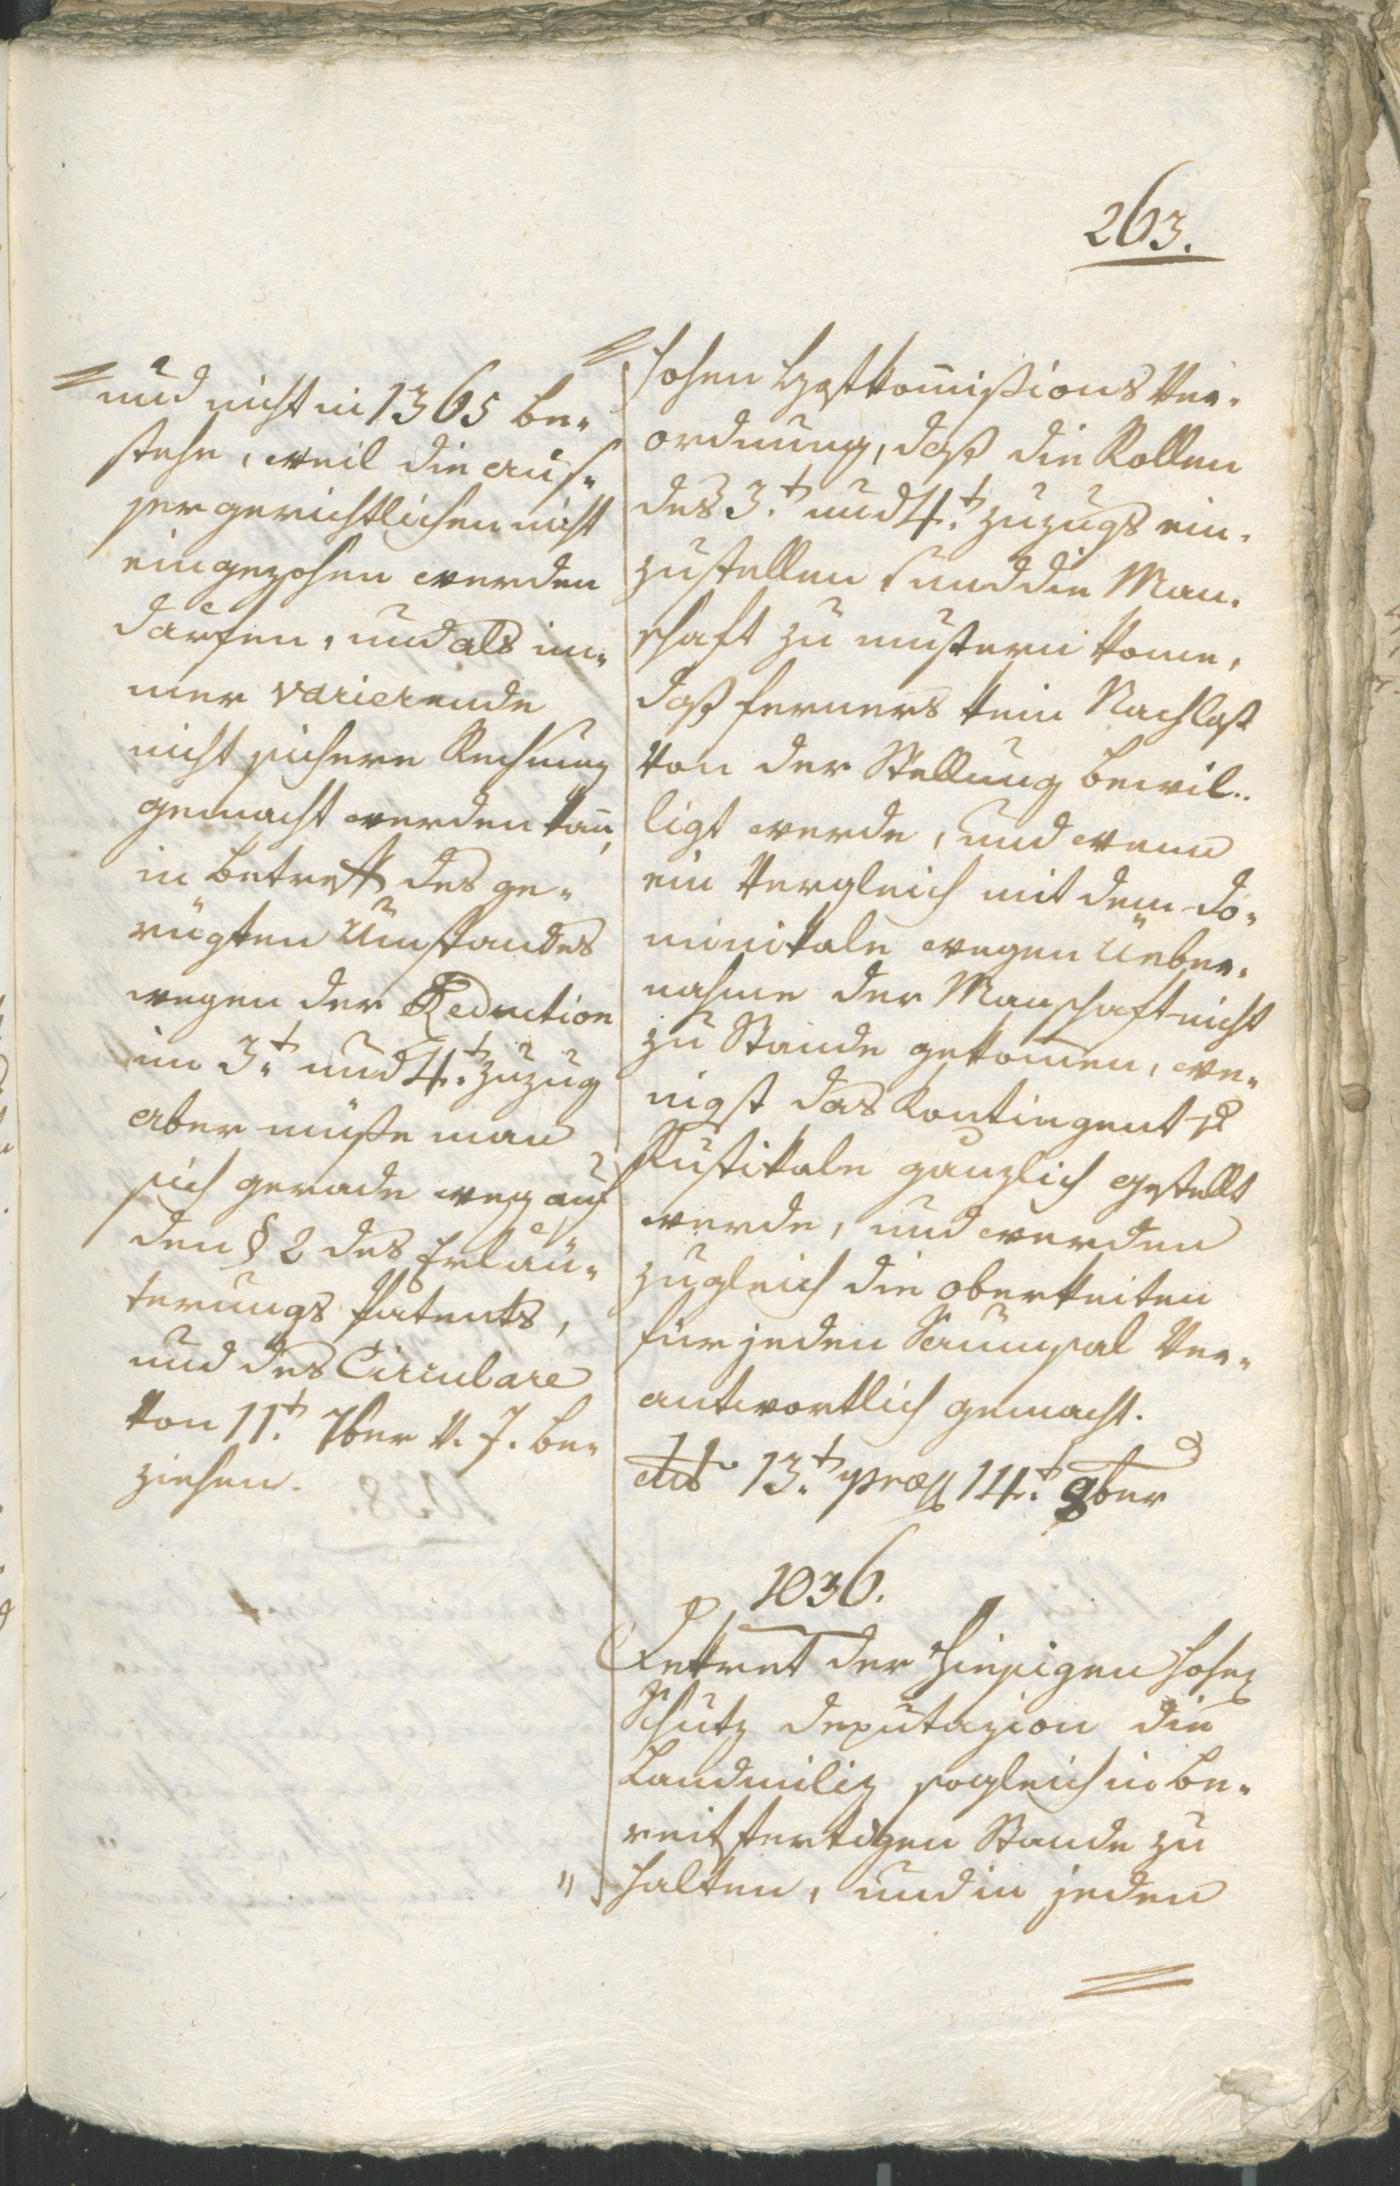 263.
und nicht in 1365 be„
stehe, weil die aus„
sergerichtlichen nicht
eingezohen werden
därfen, und als im„
mer varierende
nicht sichere Rechnung
gemacht werden kan̄,
in betreff des ge„
rügten Umstandes
wegen der Reduction
im 3.t und 4.t Zuzug
aber müße man
sich gerade weg auf
den § 2 des Erläu„
terungs Patents,
und des Circulare
von 11.t 7ber v. J. be„
ziehen.
hohen Hofkom̄ißions Ver„
ordnung, daß die Rollen
des 3.t und 4.t Zuzugs ein„
zustellen, und die Man„
schaft zu mustern kome,
daß ferners kein Nachlaß
von der Stellung bewil„
ligt werde, und wenn
ein Vergleich mit dem Do„
minikale wegen Ueber„
nahme der Manschaft nicht
zu Stande gekom̄en, we„
nigst das Kontingent
Rustikale gänzlich gestellt
werde, und werden
zugleich die Oberkeiten
für jeden Saumsal Ver„
antwortlich gemacht.
dto 13.t præs 14.t 8ber
1036.
Dekret der hiesigen hohen
Schutz Deputazion die
Landmiliz sogleich in be„
reitfertigen Stande zu
„ halten, und in jeden